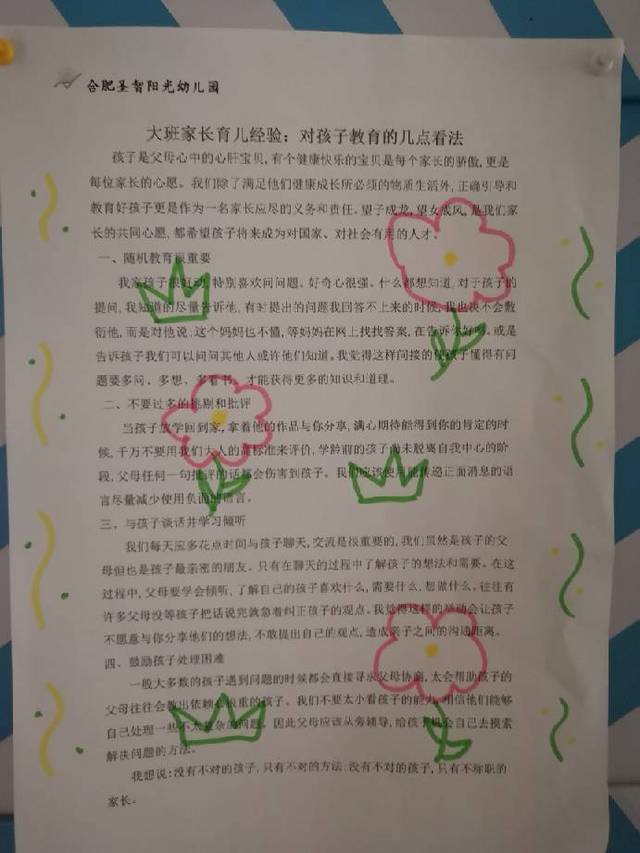 合肥圣智阳光幼儿园
大班家长育儿经验：对孩子教育的几点看法
孩子是父母心中的心肝宝贝,有个健康快乐的宝贝是每个家长的骄傲,更是
每位家长的心愿。我们除了满足他们健康成长所必须的物质生活外,正确引导和
教育好孩子更是作为一名家长应尽的义务和责任。望子成龙,望女成凤,是我们家
长的共同心愿,都希望孩子将来成为对国家、对社会有用的人才。
一、随机教育很重要
我家孩子很好动,特别喜欢问问题、好奇心很强。什么都想知道,对于孩子的
提问,我知道的尽量告诉他,有时提出的问题我回答不上来的时候,我也决不会敷
衍他,而是对他说:这个妈妈也不懂,等妈妈在网上找找答案,在告诉你好吗。或是
告诉孩子我们可以问问其他人或许他们知道。我觉得这样间接的使孩子懂得有问
题要多问、多想、多看书、才能获得更多的知识和道理。
二、不要过多的挑剔和批评
当孩子放学回到家,拿着他的作品与你分享,满心期待能得到你的肯定的时
候,千万不要用我们大人的高标准来评价,学龄前的孩子尚未脱离自我中心的阶
段,父母任何一句批评的话都会伤害到孩子。我们应该使用能传递正面消息的语
言尽量减少使用负面的语言。
三、与孩子谈话并学习倾听
我们每天应多花点时间与孩子聊天,交流是很重要的,我们虽然是孩子的父
母但也是孩子最亲密的朋友。只有在聊天的过程中了解孩子的想法和需要。在这
过程中,父母要学会倾听,了解自己的孩子喜欢什么,需要什么,想做什么。往往有
许多父母没等孩子把话说完就急着纠正孩子的观点。我觉得这样的举动会让孩子
不愿意与你分享他们的想法,不敢提出自己的观点,造成亲子之间的沟通距离。
四、鼓励孩子处理困难
一般大多数的孩子遇到问题的时候都会直接寻求父母协商,太会帮助孩子的
父母往往会教出依赖心很重的孩子。我们不要太小看孩子的能力,相信他们能够
自己处理一些不太复杂的问题。因此父母应该从旁辅导,给孩子机会自己去摸索
解决问题的方法。
我想说:没有不对的孩子,只有不对的方法;没有不对的孩子,只有不称职的
家长。